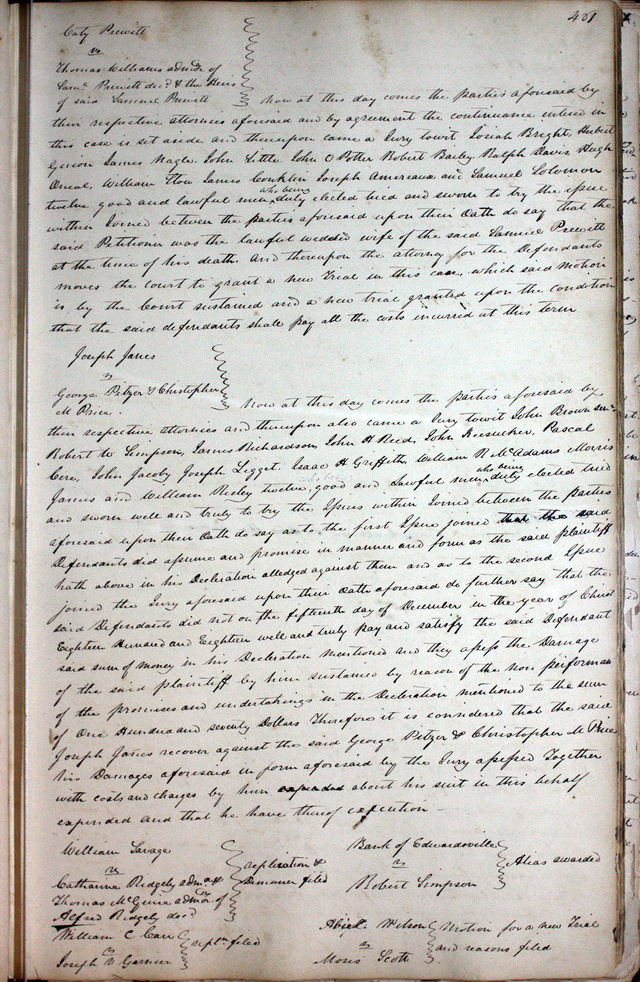 401
Caty Prewitt
vs
Thomas Williams admr. of
Saml. Prewitt decd. & the Heirs
of said Samuel Prewitt
Now at this day comes the parties aforesaid by
their respective attornies aforesaid and by agreement the continuance entered in
this case is set aside and thereupon came a Jury towit Josiah Bright, Hubert
Guion James Nagle John Little John C Potter Robert Bailey Ralph Davis, Hugh
Oneal, William James Conklin Joseph and Samuel Solomon
twelve good and lawful men who being duly elected tried and sworn to try the issue
within Joined between the parties aforesaid upon their Oath do say that the
said Petitioner was the lawful wedded wife of the said Samuel Prewitt
at the time of his death. And thereupon the attorney for the Defendants
moves the court to grant a new Trial in this case, which said motion
is by the Court sustained and a new trial granted upon the condition
that the said defendants shall pay all the costs incurred at this term
Joseph Janes
vs
George Pitzer & Christopher
M Price.
Now at this day comes the parties aforesaid by
their respective attornies and thereupon also came a Jury towit John Brown senr.
Robert W Simpson, James Richardson, John H Reed, John Pascal
Cere, John Jacoby Joseph Ligget. Isaac H Griffith, William R McAdams Morris
James and William Risley twelve good and Lawful men who being duly elected tried
and sworn well and truly to try the Issues within Joined between the parties
aforesaid upon their Oath do say as to the first Issue joined that the said
Defendants did assume and promise in manner and form as the said plaintiff
hath above in his Declaration alledged against them and as to the second Issue
joined the Jury aforesaid upon their Oath aforesaid do further say that the
said Defendants did not on the fifteenth day of December in the year of Christ
Eighteen Hundred and Eighteen well and truly pay and satisfy the said Defendant
said sum of money in his Declaration mentioned and they assess the Damage
of the said plaintiff by him sustained by reason of the non performan
of the promises and undertakings in the Declaration mentioned to the sum
of One Hundred and seventy Dollars Therefore it is considered that the said
Joseph Janes recover against the said George Pitzer & Christopher M Price
his Damages aforesaid in form aforesaid by the Jury assessed Together
with costs and charges by him expended about his suit in this behalf
expended and that he have thereof execution —
William Savage
vs
Catharine Ridgely admx. &
Thomas McGuire admr. of
Alfred Ridgely decd
replication &
Demurrer filed
Bank of Edwardsville
vs
Robert Simpson
Alias awarded
William C Carr
vs
Joseph V Garnier
repln. filed
Abijah Wilson
vs
Moses Scott
Motion for a new Trial
and reasons filed